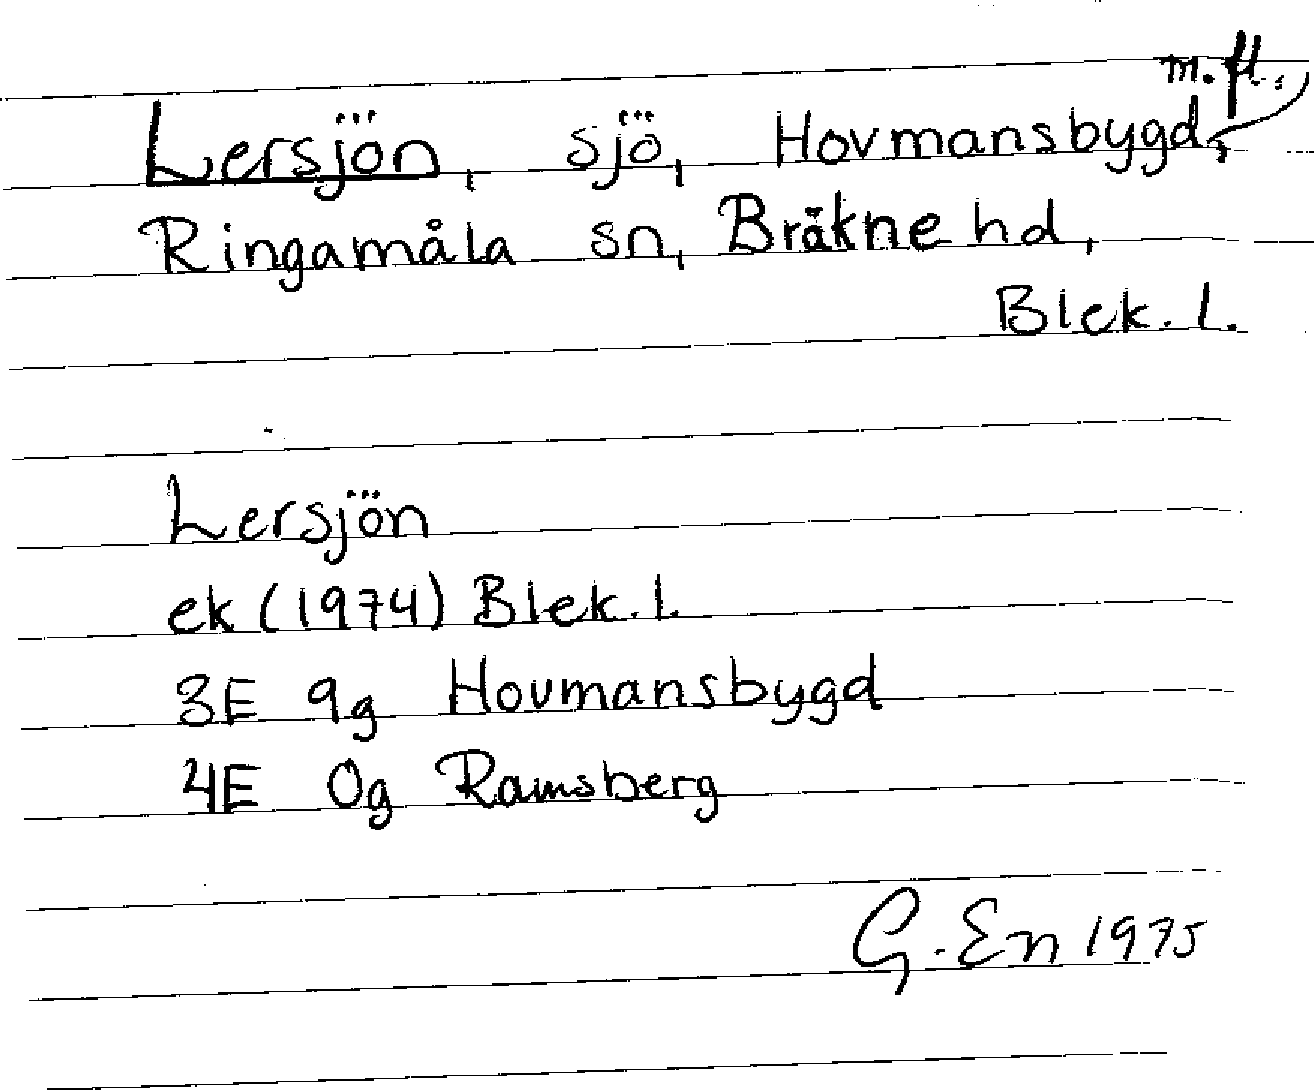 Lersjön, sjö, Hovmansbygd, m.fl.,
Ringamåla sn, Bräkne hd,
Blek. l.
Lersjön
ek (1974) Blek. l.
3E 9g Hovmansbygd
4E 0g Ramsberg
G. En 1975